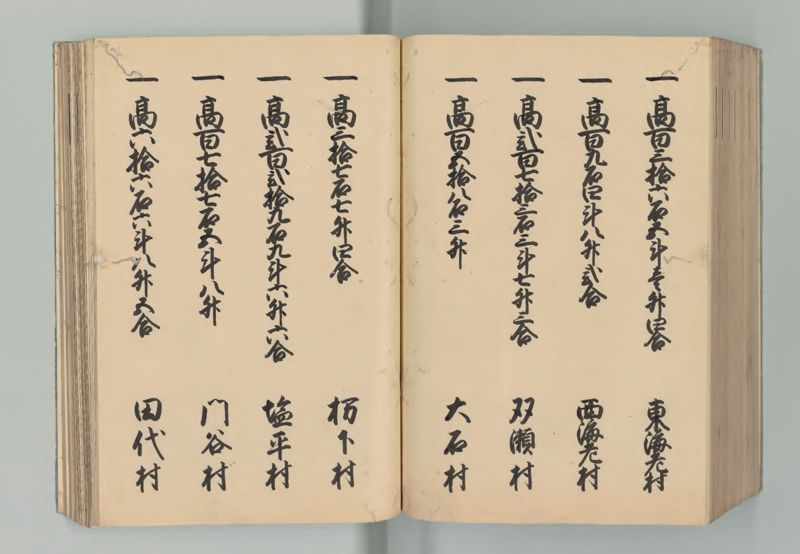 一 高百三拾六石五斗壱升四合 東海老村
一 高百九石四斗八升弐合 西海老村
一 高弐百七拾三石三斗七升三合 双瀬村
一 高百五拾八石三升 大石村
一 高三拾七石七升四合 栃下村
一 高弐百弐拾九石九斗六升六合 塩平村
一 高百七拾七石五斗八升 門谷村
一 高六拾六石六斗八升五合 田代村